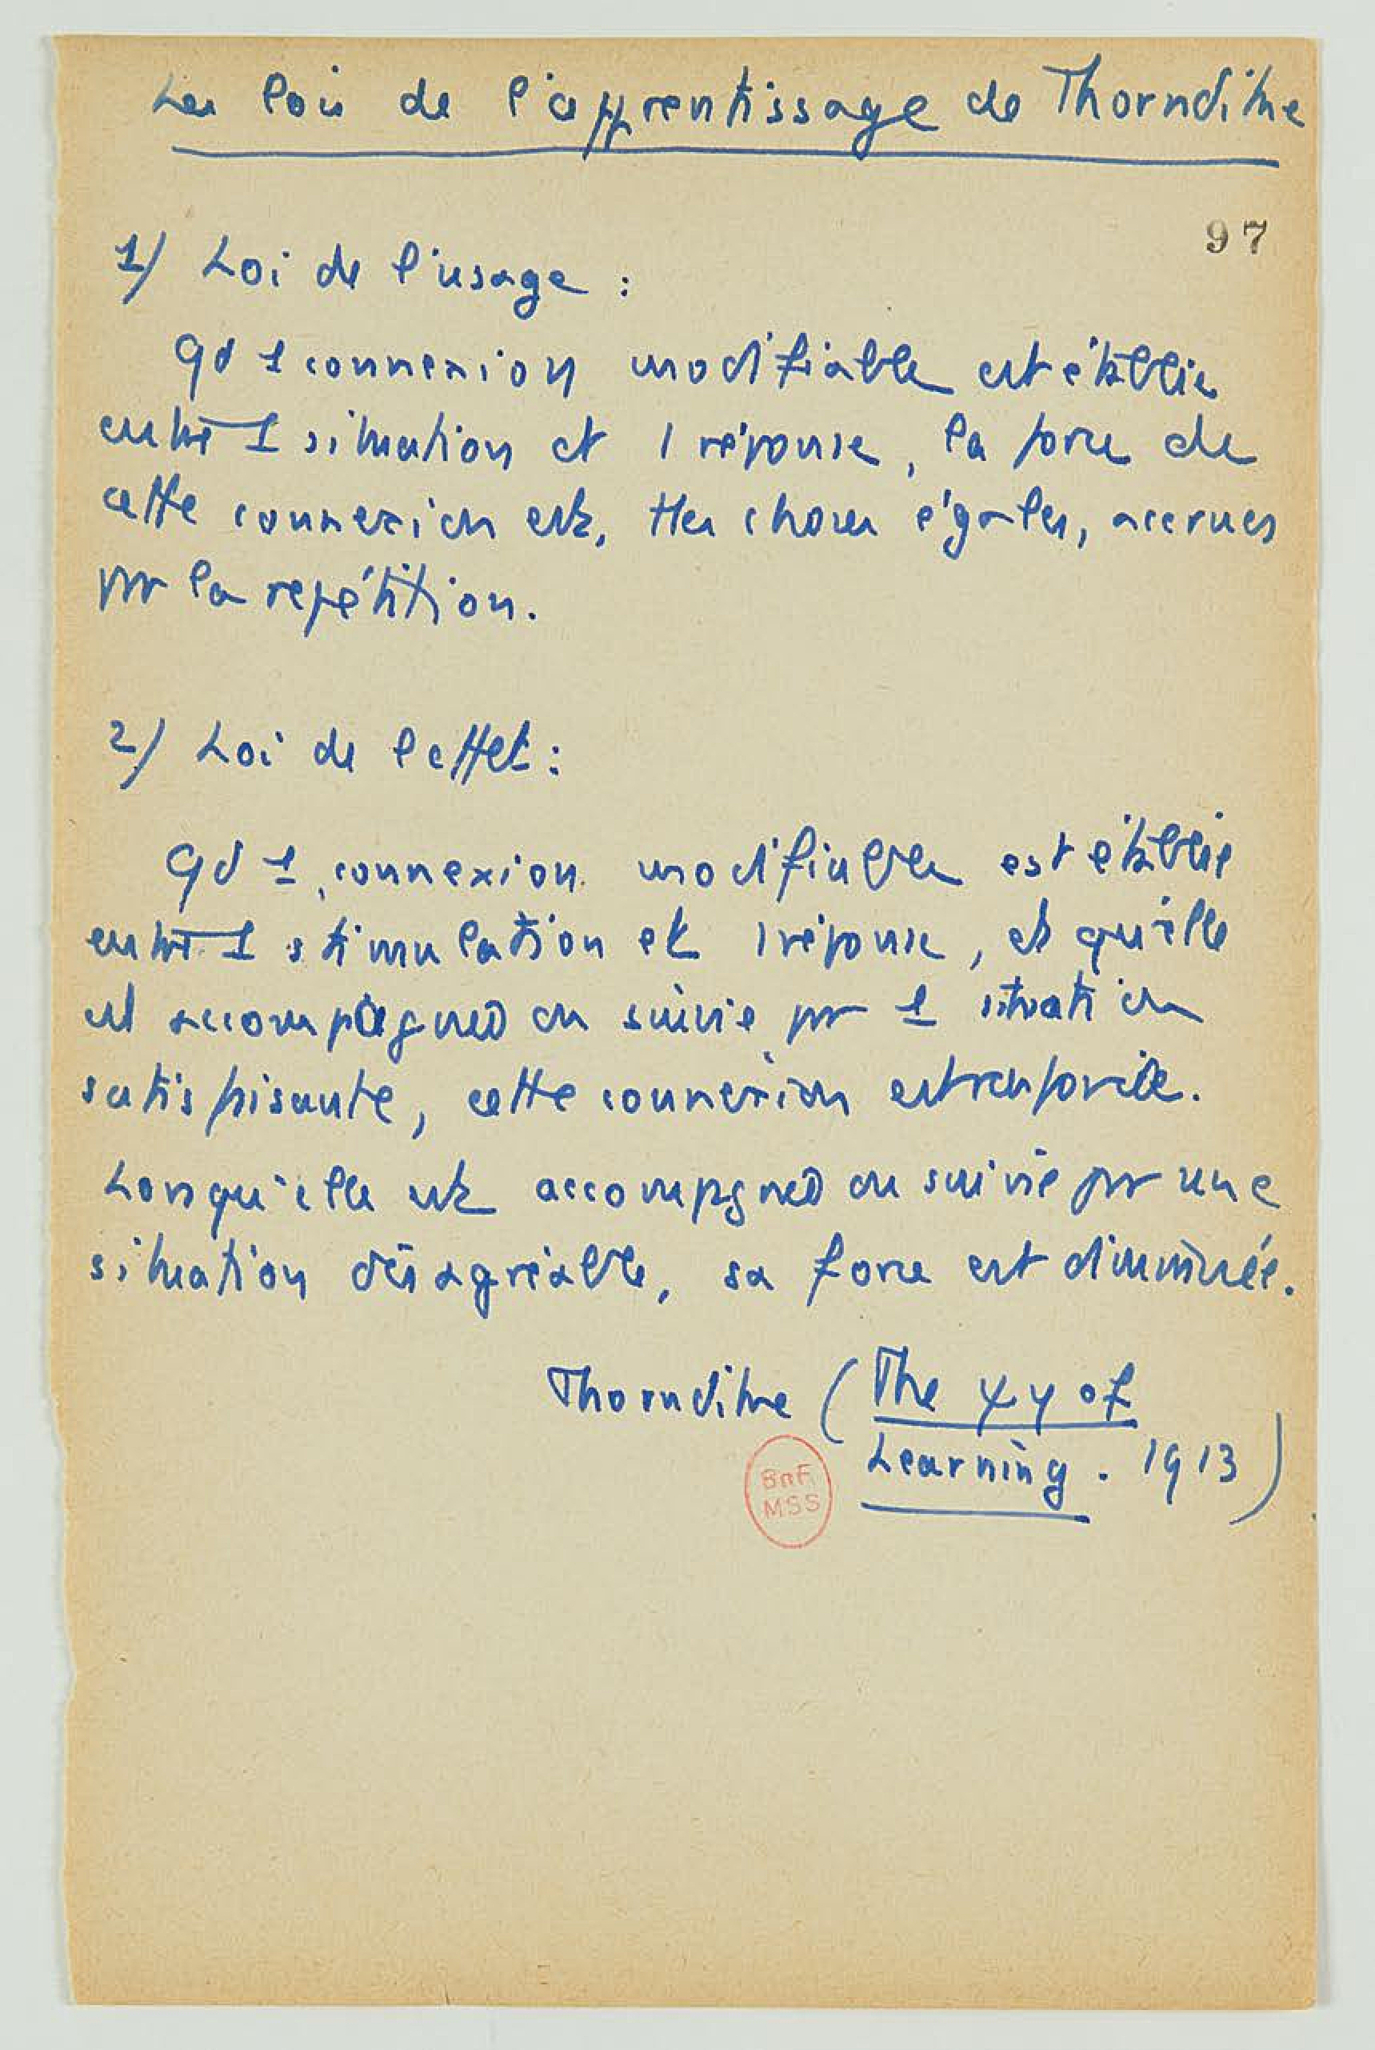 Les lois de l'apprentissage de Thorndike
97
1) Loi de l'usage :
Qd 1 connexion modifiable est établie
entre 1 situation et 1 réponse, la force de
cette connexion est, ttes choses égales, accrues
par la repétition.
2) Loi de l'effet :
Qd 1 connexion modifiable est établie
entre 1 stimulation et 1 réponse, et qu'elle
est accompagnée ou suivie par 1 situation
satisfaisante, cette connexion est renforcée.
Lorsqu'elle est accompagnée ou suivie par une
situation désagréable, sa force est diminuée.
Thorndike (The ψy of
Learning. 1913)
BnF
MSS